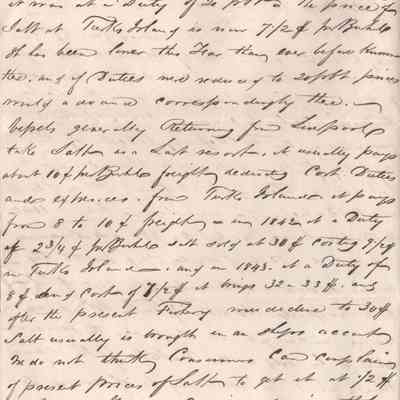 it was at a Duty of 20 pct the price of
Salt at Turks Island is now 7 1/2 ¢ pr Bushel
It has been lower this Year than ever before known
there, and if Duties were reduced to 20 pct prices
would advance correspondingly there. —
Vessels generally Returning from Liverpool
take Salt as a Last resort, it usually pays
about 10 ¢ pr Bushel freight, deducting Cost Duties
and expences. from Turks Island it pays
from 8 to 10 ¢ freight — in 1842 at a Duty
of 2 3/4 ¢ pr Bushel salt sold at 30 ¢ costing 9 1/2 ¢
in Turks Island —. and in 1843. at a Duty of
8 ¢ and Cost of 7 1/2 ¢ it brings 32 a 33 ¢. and
after the present Fishery must decline to 30 ¢
Salt usually is brought in on Ships account
We do not think Consumers Can complain
of present prices of Salt to get it at 1/2 ¢